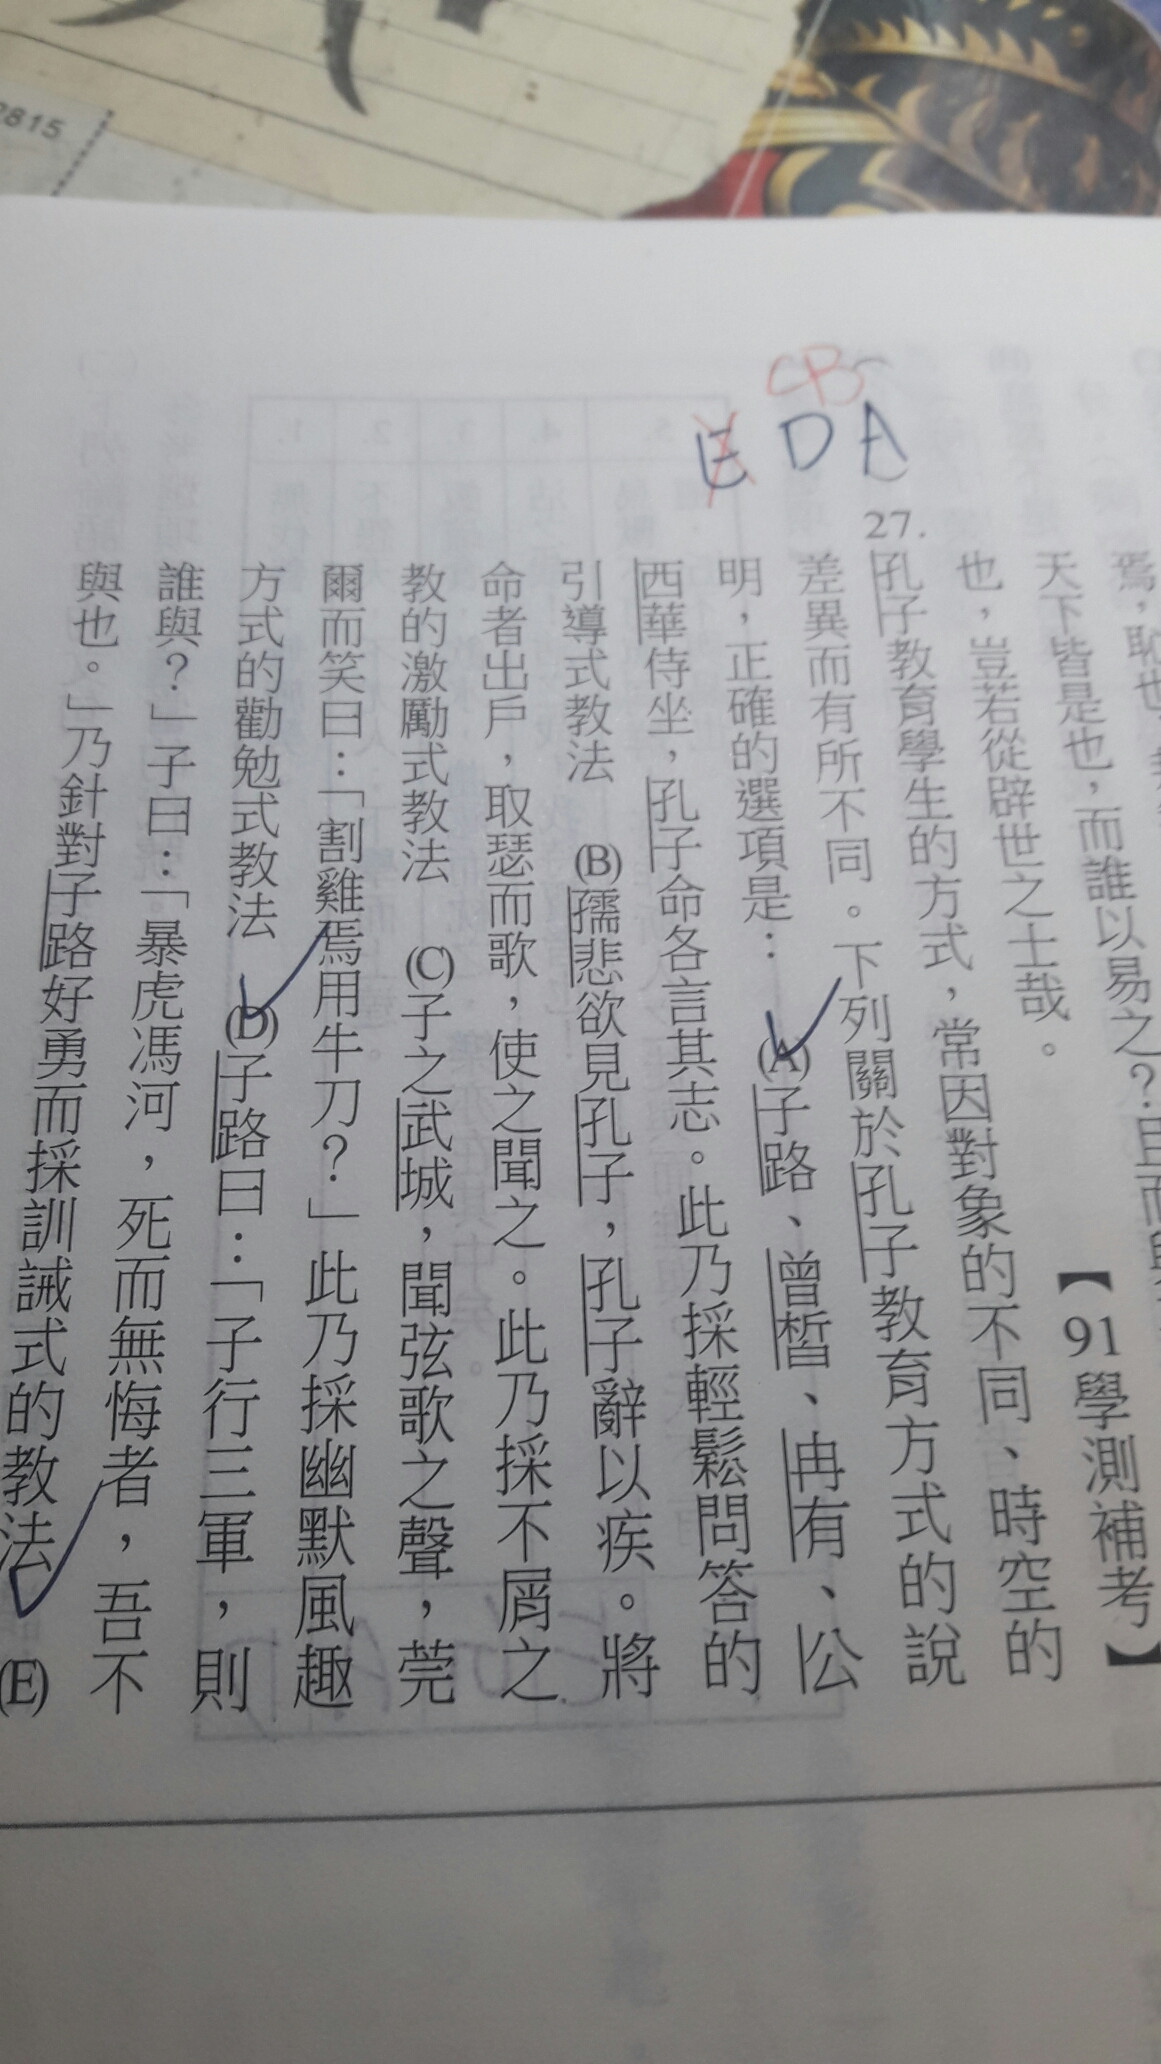 2815
CB
A D E
焉，恥也
天下皆是也，而誰以易之？且而與
也，豈若從辟世之士哉。
【91學測補考】
27.
孔子教育學生的方式，常因對象的不同、時空的
差異而有所不同。下列關於孔子教育方式的說
明，正確的選項是： (A)子路、曾皙、冉有、公
西華侍坐，孔子命各言其志。此乃採輕鬆問答的
引導式教法 (B)孺悲欲見孔子，孔子辭以疾。將
命者出戶，取瑟而歌，使之聞之。此乃採不屑之
教的激勵式教法 (C)子之武城，聞弦歌之聲，莞
爾而笑曰：「割雞焉用牛刀？」此乃採幽默風趣
方式的勸勉式教法 (D)子路曰：「子行三軍，則
誰與？」子曰：「暴虎馮河，死而無悔者，吾不
與也。」乃針對子路好勇而採訓誡式的教法 (E)